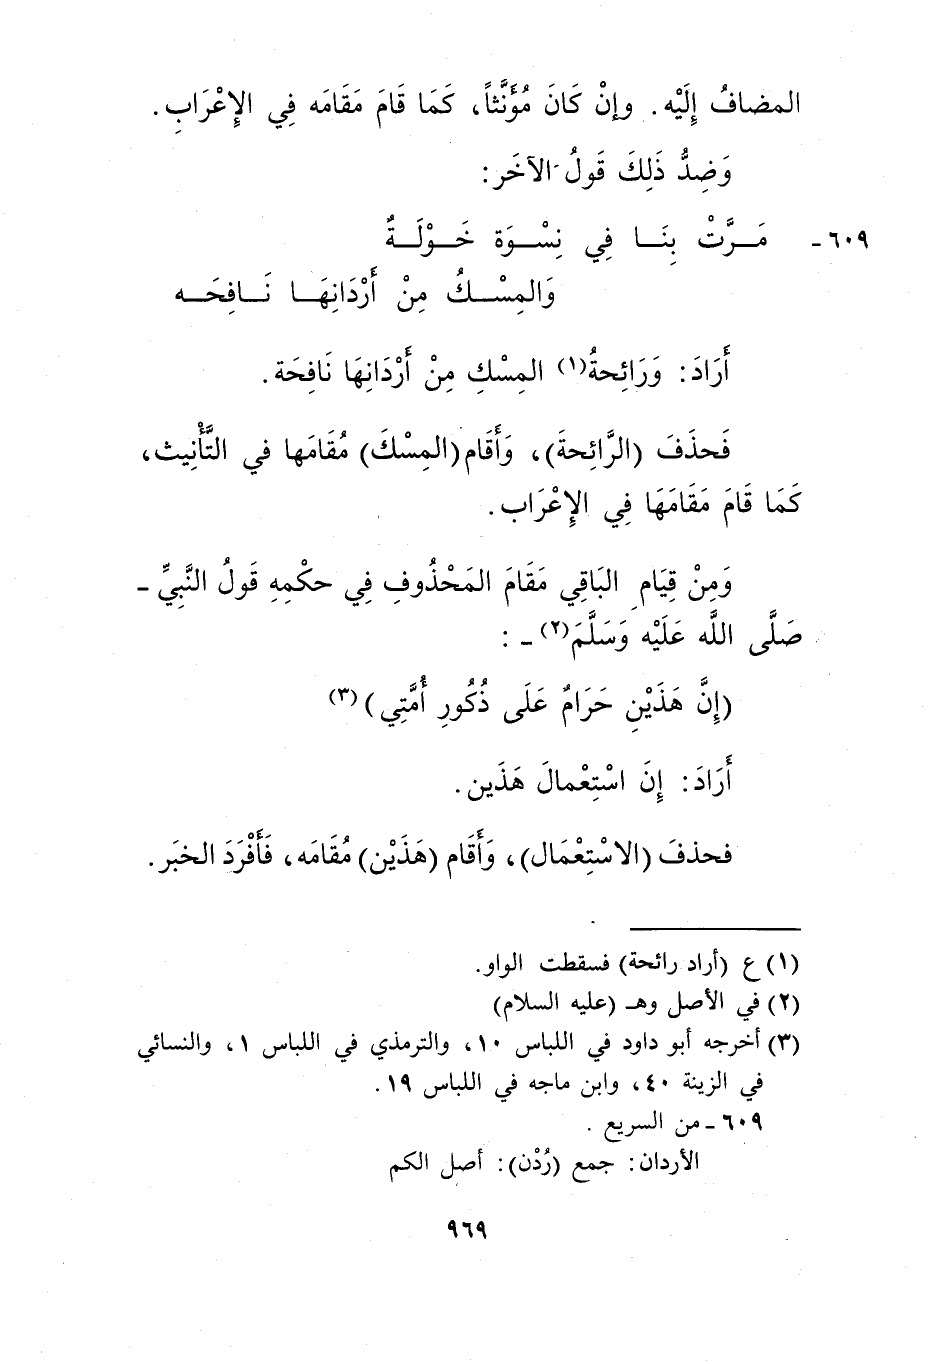 المضافُ إِلَيْه. وإنْ كَانَ مُؤَنَّثاً، كَمَا قَامَ مَقَامَه فِي الإِعْرَابِ.
وَضِدُّ ذَلِكَ قَولُ الآخَر:
٦٠٩- مَـرَّتْ بِنَـا فِي نِسْـوَة خَـوْلَـةٌ
وَالمِسْـكُ مِنْ أَرْدَانِهَـا نَـافِحَـه
أَرَادَ: وَرَائِحةُ(١) المِسْكِ مِنْ أَرْدَانِهَا نَافِحَة.
فَحذَفَ (الرَّائِحةَ)، وَأَقَام (المِسْكَ) مُقَامَها في التَّأْنِيث،
كَمَا قَامَ مَقَامَهَا فِي الإِعْرَاب.
وَمِنْ قِيَامِ البَاقِي مَقَامَ المَحْذُوفِ فِي حكْمِهِ قَولُ النَّبِيِّ -
صَلَّى اللَّه عَلَيْه وَسَلَّمَ(٢) - :
(إِنَّ هَذَيْنِ حَرَامٌ عَلَى ذُكُورِ أُمَّتِي)(٣)
أَرَادَ: إِنَ اسْتِعْمالَ هَذَين.
فحذفَ (الاسْتِعْمَال)، وَأَقَام (هَذَيْن) مُقَامَه، فَأَفْرَدَ الخبَر.
(١) ع (أراد رائحة) فسقطت الواو.
(٢) في الأصل وهـ (عليه السلام)
(٣) أخرجه أبو داود في اللباس ١٠، والترمذي في اللباس ١، والنسائي
في الزينة ٤٠، وابن ماجه في اللباس ١٩.
٦٠٩ - من السريع.
الأردان: جمع (رُدْن): أصل الكم
٩٦٩